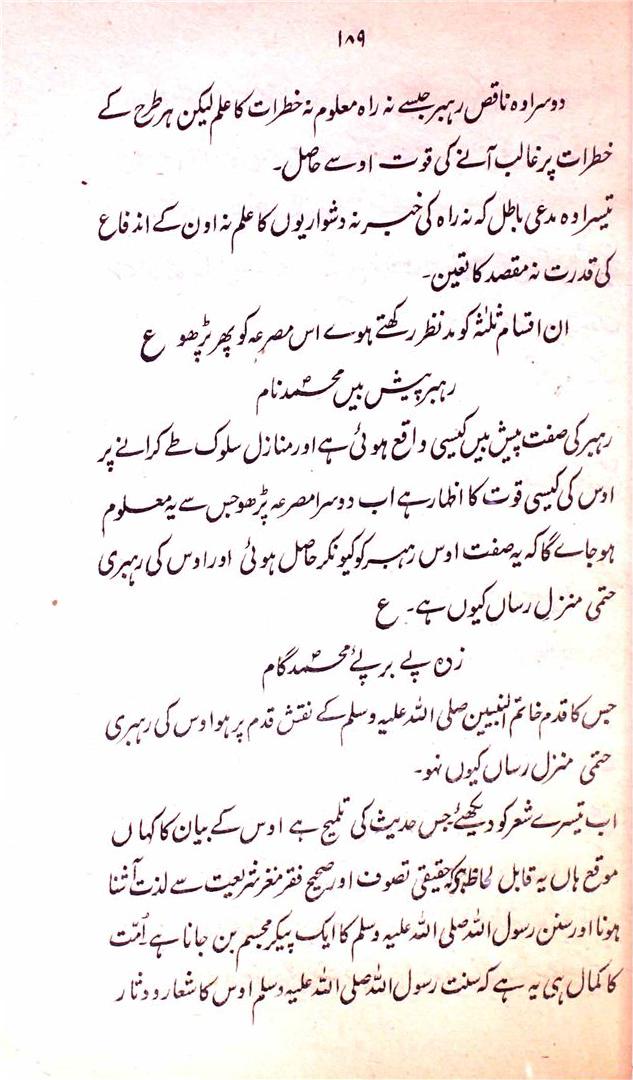 ۱۸۹
دوسرا وہ ناقص رہبر جسے نہ راہ معلوم نہ خطرات کا علم لیکن ہر طرح کے
خطرات پر غالب آنے کی قوت اوسے حاصل۔
تیسرا وہ مدعی باطل کہ نہ راہ کی خبر نہ دشواریوں کا علم نہ اون کے اندفاع
کی قدرت نہ مقصد کا تعین۔
ان اقسام ثلثہ کو مدنظر رکھتے ہوے اس مصرعہ کو پھر پڑھو ع
رہبر پیش بیں محمدؐ نام
رہبر کی صفت پیش بیں کیسی واقع ہوئی ہے اور منازل سلوک طے کرانے پر
اوس کی کیسی قوت کا اظہار ہے اب دوسرا مصرعہ پڑھو جس سے یہ معلوم
ہوجاے گا کہ یہ صفت اوس رہبر کو کیونکر حاصل ہوئی اور اوس کی رہبری
حتمی منزل رساں کیوں ہے۔ ع
زدہ پے بر پئے محمدؐ گام
جس کا قدم خاتم النبیین صلی اللہ علیہ وسلم کے نقش قدم پر ہو اوس کی رہبری
حتمی منزل رساں کیوں نہو۔
اب تیسرے شعر کو دیکھئے جس حدیث کی تلمیح ہے اوس کے بیان کا کہاں
موقع ہاں یہ قابل لحاظ ہے کہ حقیقی تصوف اور صحیح فقر مغز شریعت سے لذت آشنا
ہونا اور سنن رسول اللہ صلی اللہ علیہ وسلم کا ایک پیکر مجسم بن جانا ہے اُمّت
کا کمال ہی یہ ہے کہ سنت رسول اللہ صلی اللہ علیہ وسلم اوس کا شعار و دثار